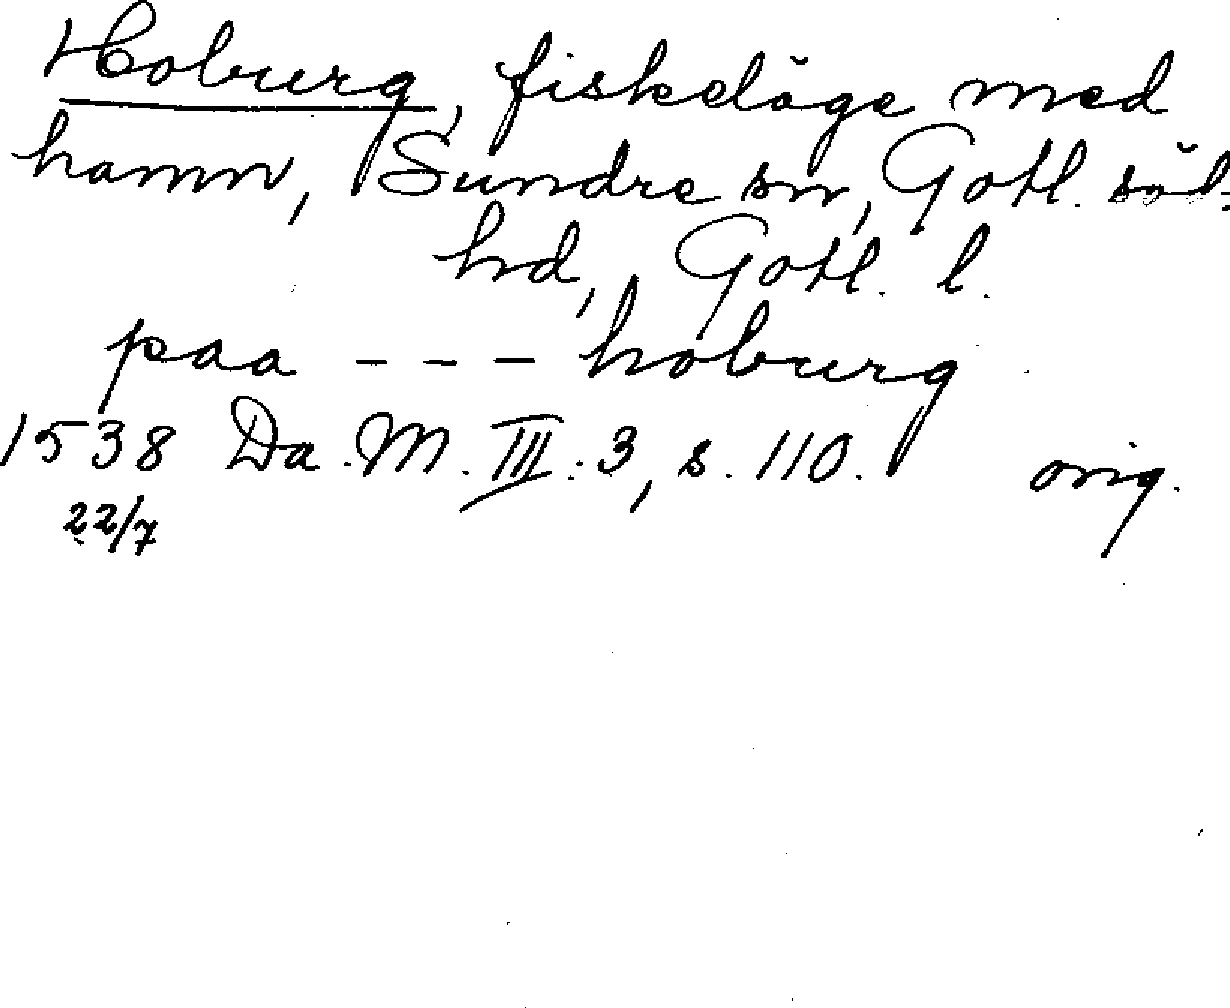 Hoburg, fiskeläge med
hamn, Sundre sn, Gotl. söd.
hd, Gotl. l.
paa - - - hoburg
1538 Da. M. III. 3, s. 110. orig.
22/7